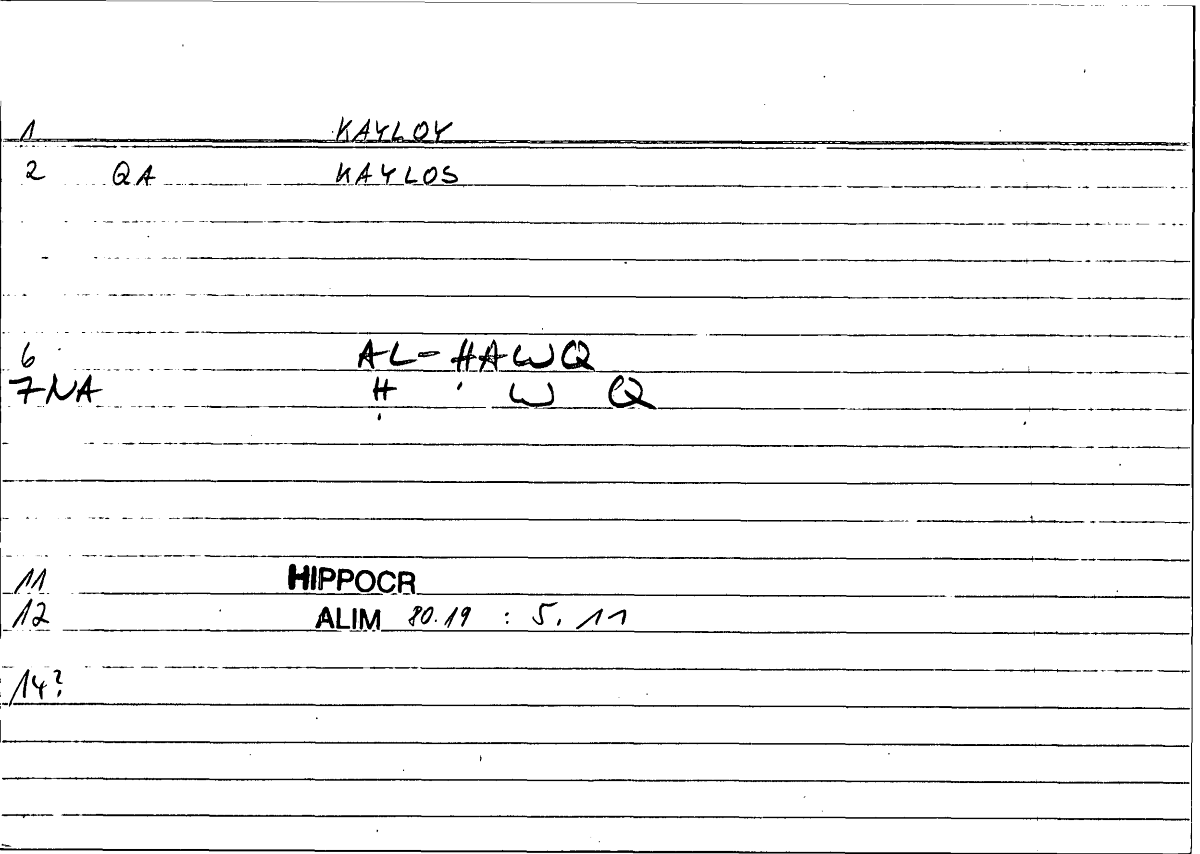 1 KAYLOY
2 QA KAYLOS
6 AL-ḤAWQ
7 NA Ḥ W Q
11 HIPPOCR
12 ALIM 80.19 : 5, 11
14?